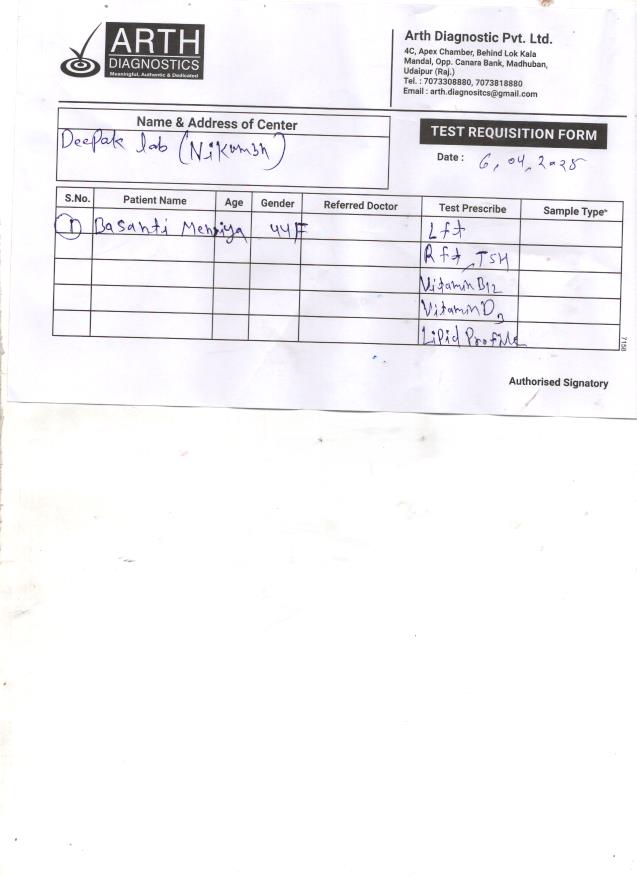 ARTH
DIAGNOSTICS
Meaningful, Authentic & Dedicated
Arth Diagnostic Pvt. Ltd.
4C, Apex Chamber, Behind Lok Kala
Mandal, Opp. Canara Bank, Madhuban,
Udaipur (Raj.)
Tel. : 7073308880, 7073818880
Email : arth.diagnositcs@gmail.com
Name & Address of Center
Deepak lab (Nikumbh)
TEST REQUISITION FORM
Date : 6, 04, 2025
S.No. Patient Name Age Gender Referred Doctor Test Prescribe Sample Type*
1 Basanti 44/F Lft
Rft, TSH
Vitamin B12
Vitamin D3
Lipid Profile
7158
Authorised Signatory